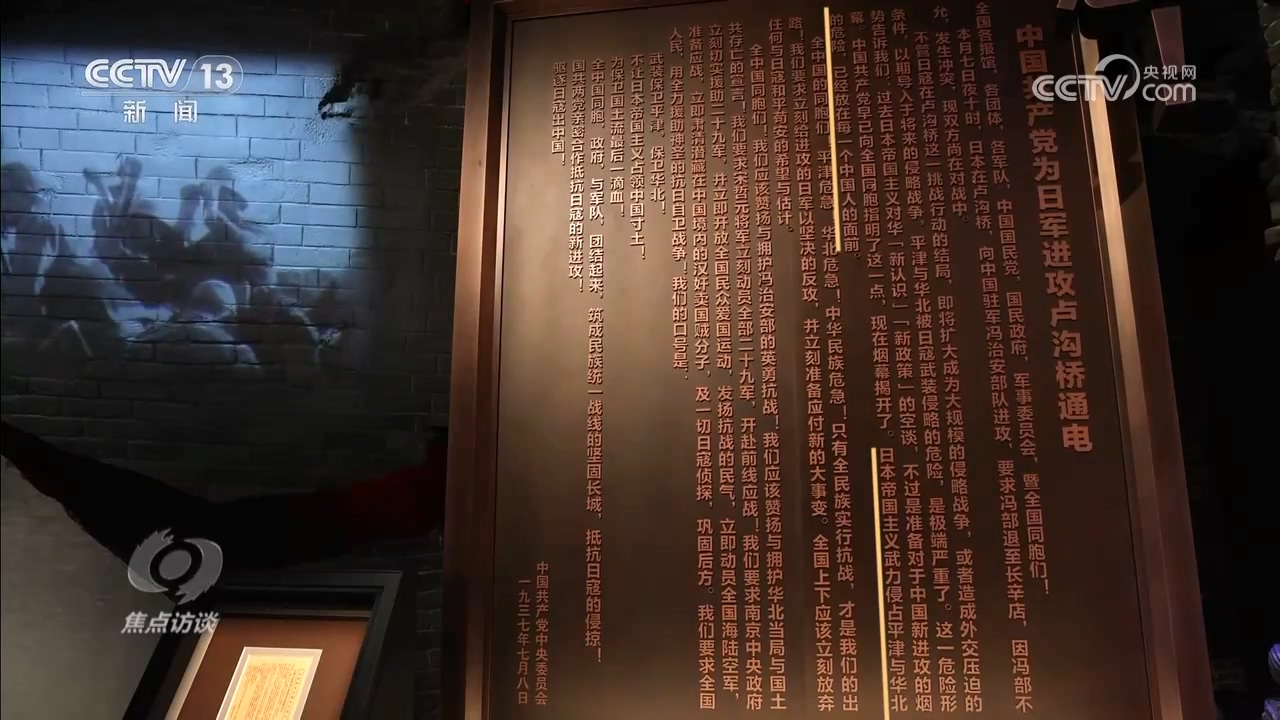 CCTV 13
新闻
CCTV 央视网
com
中国共产党为日军进攻卢沟桥通电
全国各报馆，各团体，各军队，中国国民党，国民政府，军事委员会，暨全国同胞们！
本月七日夜十时，日本在卢沟桥，向中国驻军冯治安部队进攻，要求冯部退至长辛店，因冯部不
允，发生冲突，现双方尚在对战中。
不管日寇在卢沟桥这一挑战行动的结局，即将扩大成为大规模的侵略战争，或者造成外交压迫的
条件，以期导入于将来的侵略战争，平津与华北被日寇武装侵略的危险，是极端严重了。这一危险形
势告诉我们，过去日本帝国主义对华「新认识」「新政策」的空谈，不过是准备对于中国新进攻的烟
幕。中国共产党早已向全国同胞指明了这一点，现在烟幕揭开了。日本帝国主义武力侵占平津与华北
的危险，已经放在每一个中国人的面前。
全中国的同胞们，平津危急！华北危急！中华民族危急！只有全民族实行抗战，才是我们的出
路！我们要求立刻给进攻的日军以坚决的反攻，并立刻准备应付新的大事变。全国上下应该立刻放弃
任何与日寇和平苟安的希望与估计。
全中国同胞们！我们应该赞扬与拥护冯治安部的英勇抗战！我们应该赞扬与拥护华北当局与国土
共存亡的宣言！我们要求宋哲元将军立刻动员全部二十九军，开赴前线应战！我们要求南京中央政府
立刻切实援助二十九军，并立即开放全国民众爱国运动，发扬抗战的民气，立即动员全国海陆空军，
准备应战，立即肃清潜藏在中国境内的汉奸卖国贼分子，及一切日寇侦探，巩固后方。我们要求全国
人民，用全力援助神圣的抗日自卫战争！我们的口号是：
武装保卫平津，保卫华北！
不让日本帝国主义占领中国寸土！
为保卫国土流最后一滴血！
全中国同胞，政府，与军队，团结起来，筑成民族统一战线的坚固长城，抵抗日寇的侵掠！
国共两党亲密合作抵抗日寇的新进攻！
驱逐日寇出中国！
中国共产党中央委员会
一九三七年七月八日
焦点访谈